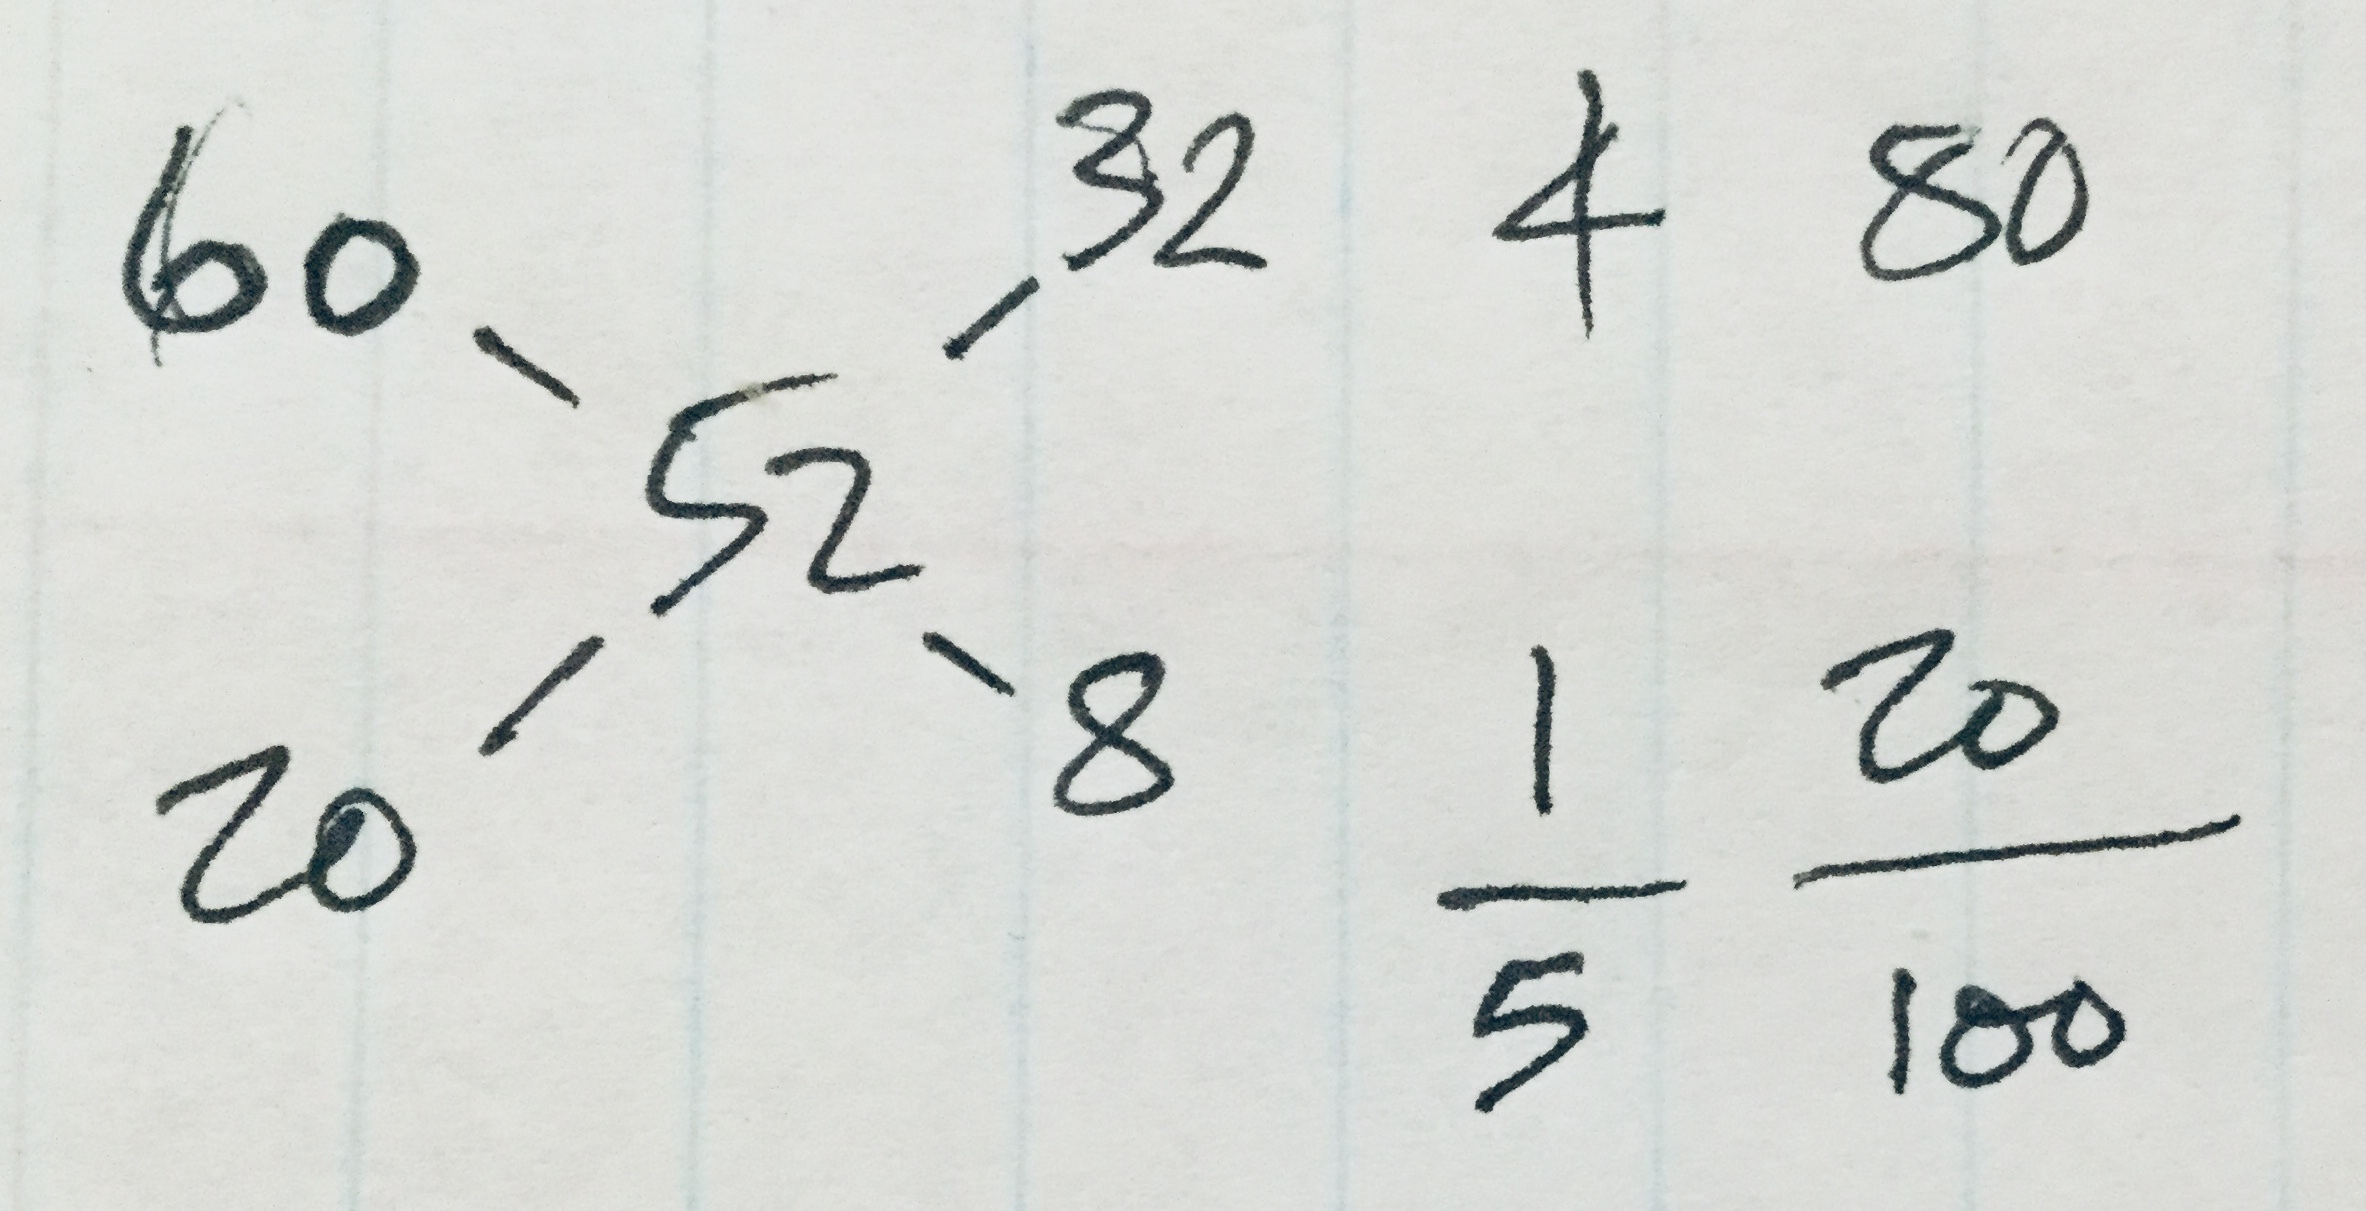 60 32 4 80
52
20 8 1 20
5 100